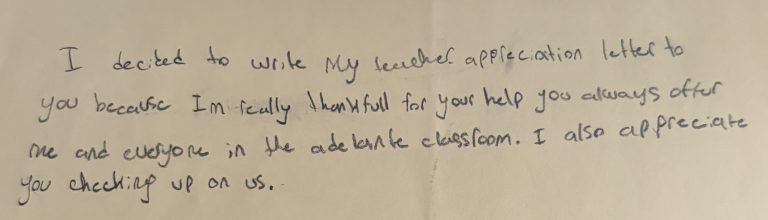 I decited to write My teacher appreciation letter to
you because Im really thankfull for your help you always offer
me and everyone in the adelante classroom. I also appreciate
you checking up on us.